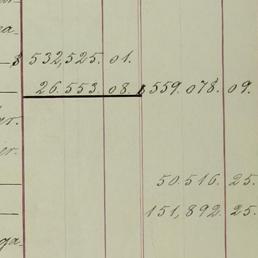 ea-
$ 532,525. 01.
26.553. 08. $559.078. 09.
er.
50.516. 25.
151,892. 25.
ga-